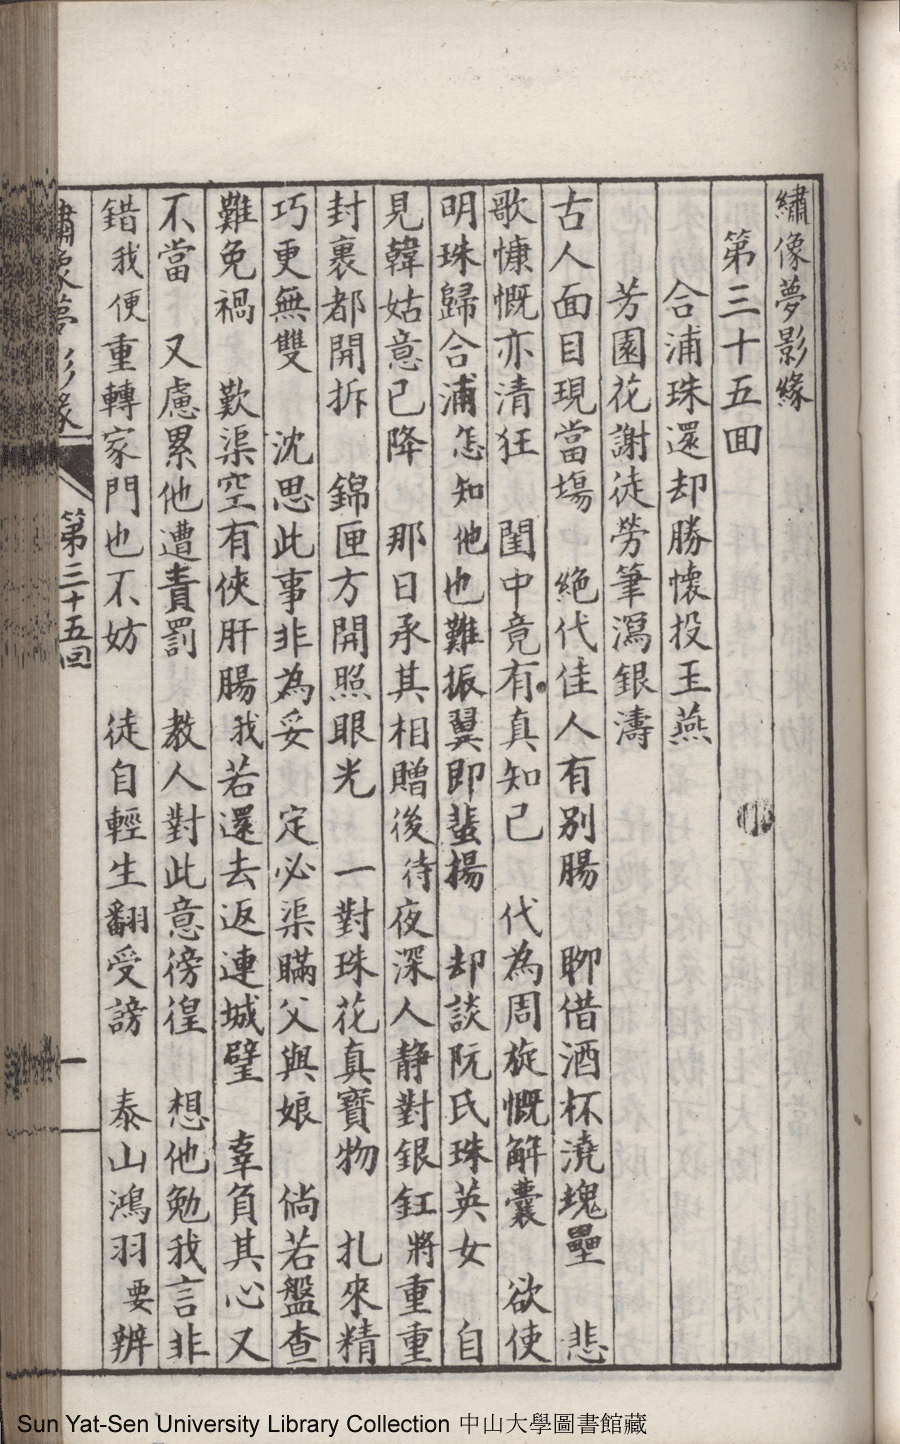 繡像夢影緣
第三十五回
合浦珠還却勝懷投玉燕
芳園花謝徒勞筆瀉銀濤
古人面目現當塲 絶代佳人有別腸 聊借酒杯澆塊壘 悲
歌慷慨亦清狂 閨中竟有真知己 代為周旋慨解囊 欲使
明珠歸合浦怎知他也難振翼即蜚揚 却談阮氏珠英女 自
見韓姑意已降 那日承其相贈後待夜深人静對銀釭將重重
封裹都開拆 錦匣方開照眼光 一對珠花真寶物 扎來精
巧更無雙 沈思此事非為妥 定必渠瞞父與娘 倘若盤查
難免禍 歎渠空有俠肝腸我若還去返連城璧 辜負其心又
不當 又慮累他遭責罰 教人對此意徬徨 想他勉我言非
錯我便重轉家門也不妨 徒自輕生翻受謗 泰山鴻羽要辨
繡像夢影緣 第三十五回 一
Sun Yat-Sen University Library Collection 中山大學圖書館藏